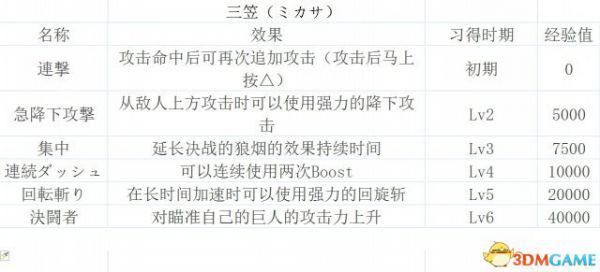 三笠（ミカサ）
名称 效果 习得时期 经验值
連撃 攻击命中后可再次追加攻击（攻击后马上
按△） 初期 0
急降下攻撃 从敌人上方攻击时可以使用强力的降下攻
击 Lv2 5000
集中 延长决战的狼烟的效果持续时间 Lv3 7500
連続ダッシュ 可以连续使用两次Boost Lv4 10000
回転斬り 在长时间加速时可以使用强力的回旋斩 Lv5 20000
決闘者 对瞄准自己的巨人的攻击力上升 Lv6 40000
3DMGAME